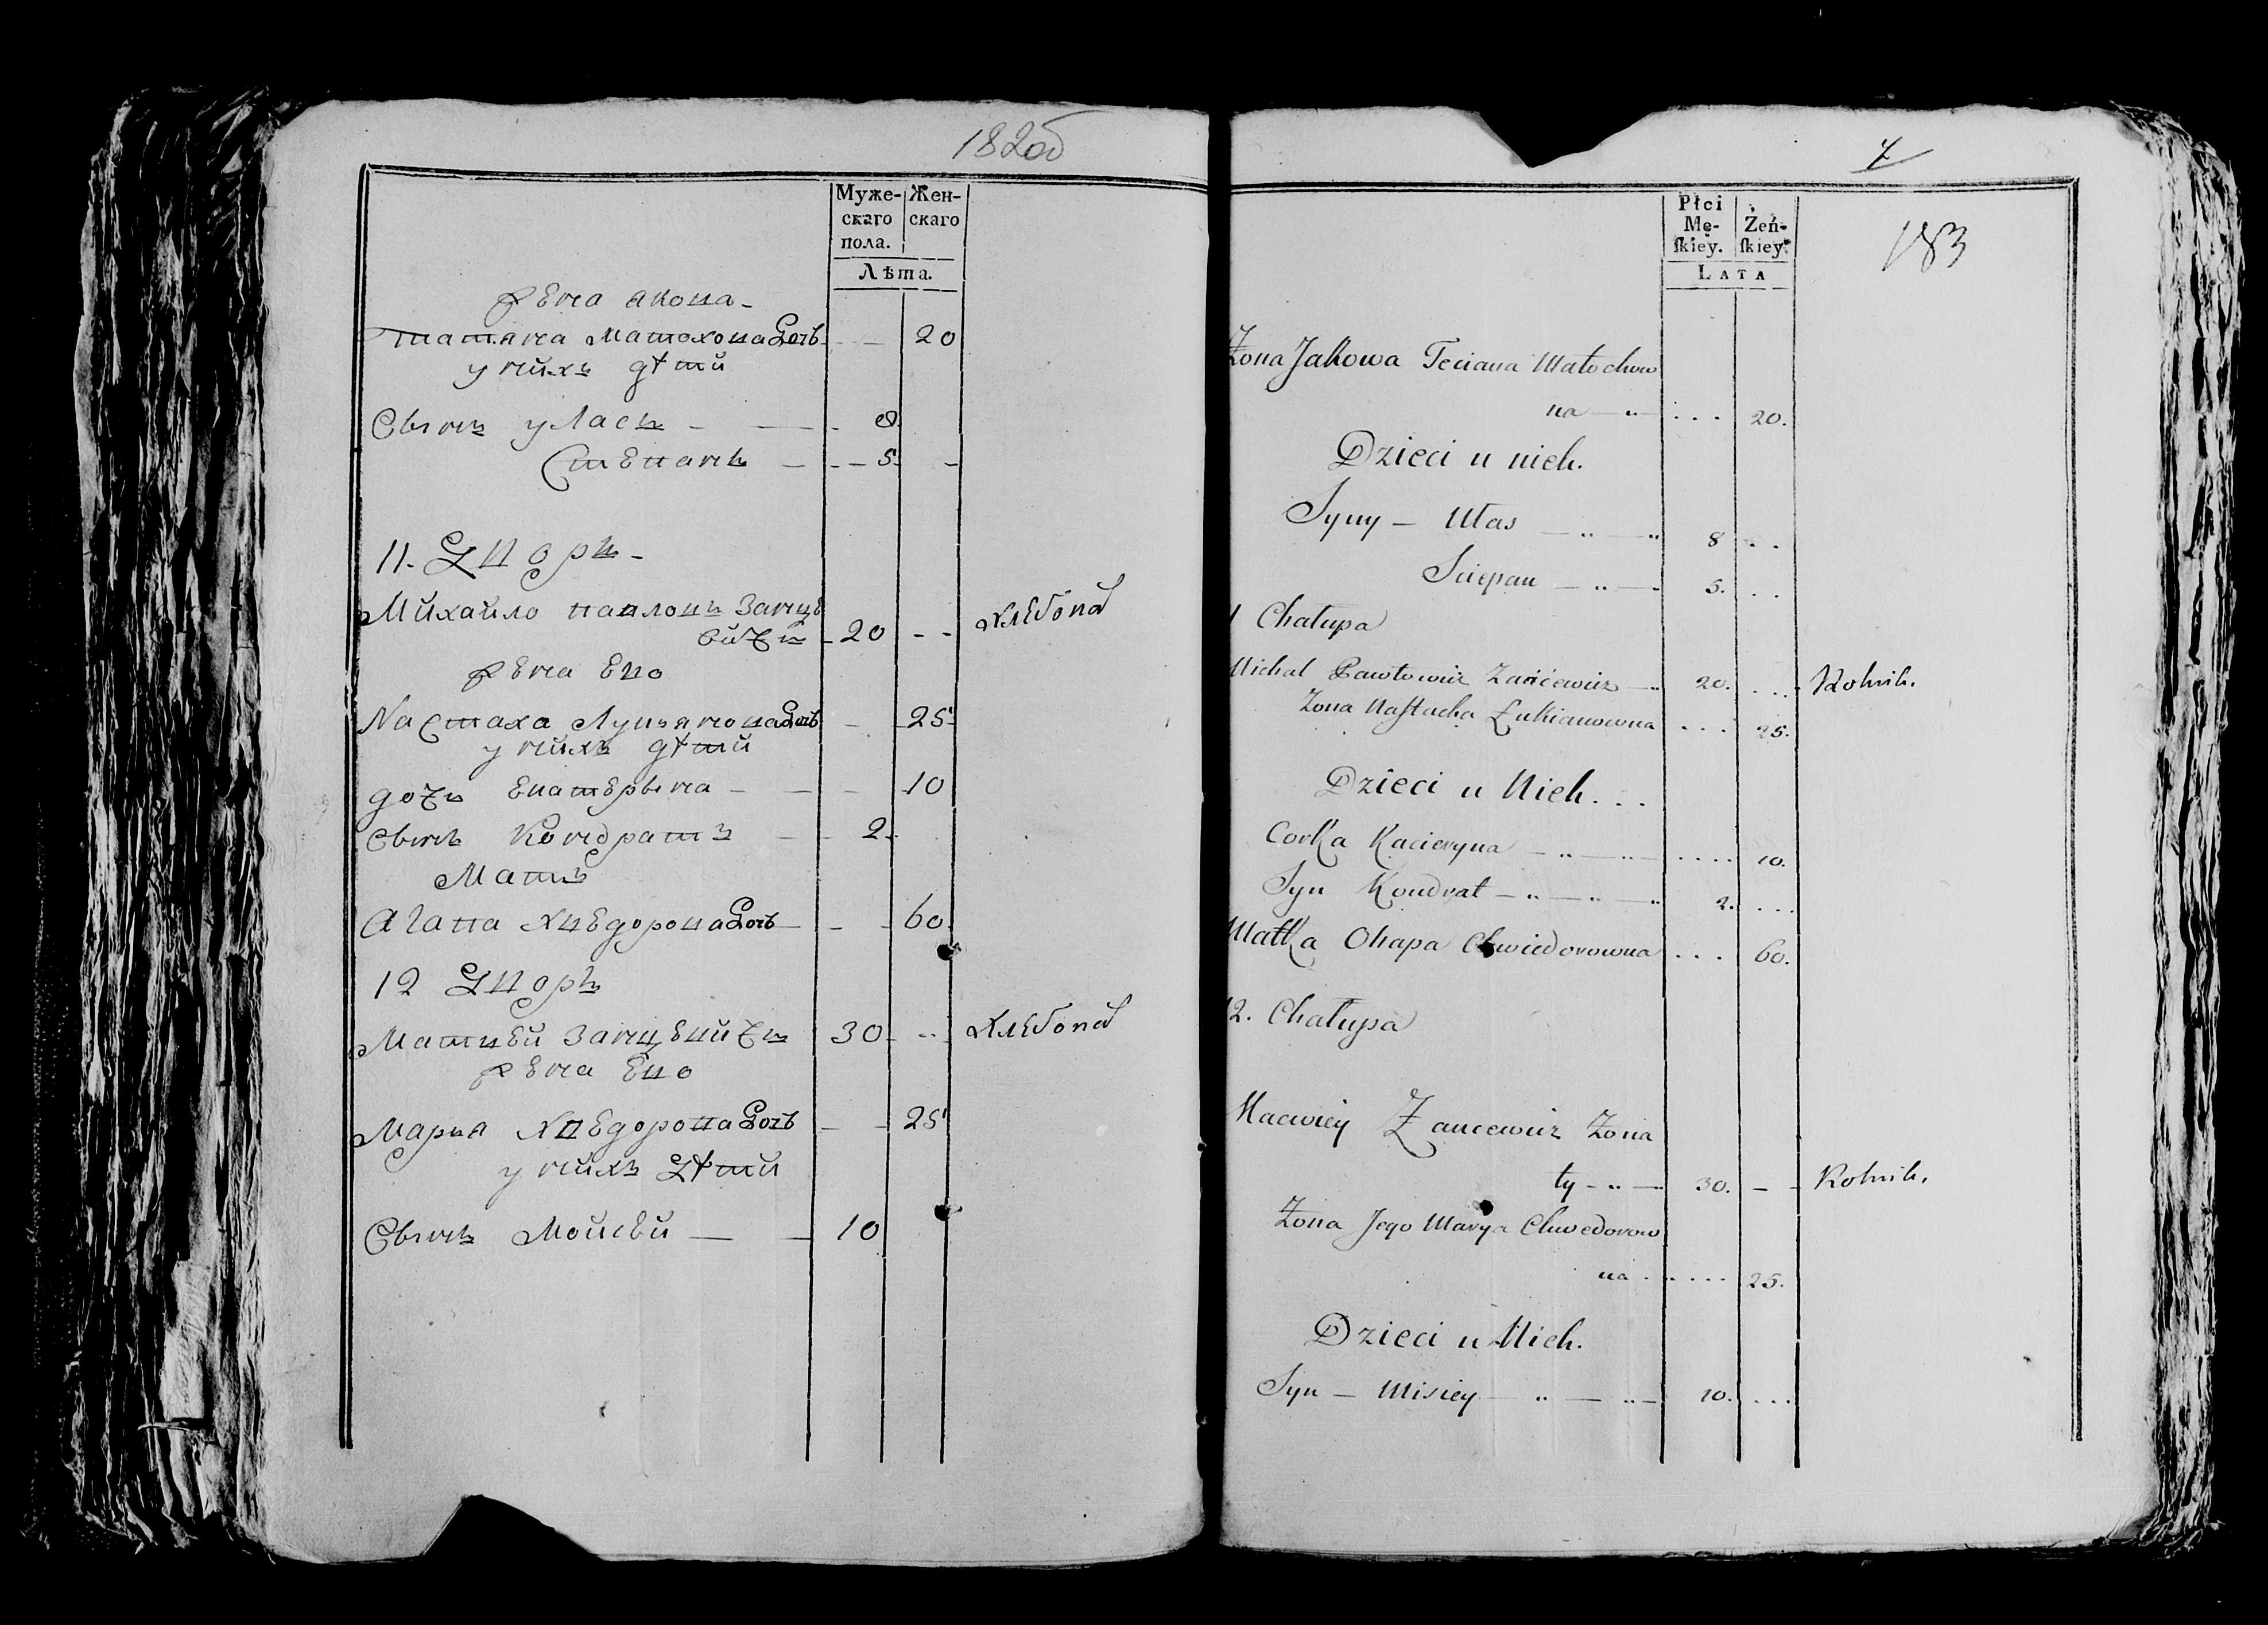 182об
Муже- Жен-
скаго скаго
пола.
Лѣта.
жена якова
татяна матохова дочь 20
у нихъ дѣти
Сынъ уласъ 8
Степанъ 5
11. Дворъ
Михайло павловъ Занце
вичъ 20 хлебопа
жена Ево
Настаха Лукянова дочь 25
у нихъ дѣти
дочъ Екатерына 10
Сынъ Кондратъ 2
Матъ
Агапа Хведорова дочь 60
12 Дворъ
Матвей Занцевичъ 30 хлебопа
жена Ево
Маръя Хведорова дочь 25
у нихъ Дѣти
Сынъ Мойсей 10
7
183
Płci
Mę- Żeń-
skiey. skiey.
LATA
Żona Jakowa Teciana Matochow
na 20.
Dzieci u nich.
Syny – Ułas 8
Sciepan 5.
1 Chałupa
Michal Pawłowicz Zańcewicz 20. Rolnik.
Żona Nastacha Łukianowna 25.
Dzieci u Nich...
Corka Kacieryna 10.
Syn Kondrat 2.
Matka Ohapa Chwiedorowna 60.
12. Chałupa
Macwiey Zancewicz Żona
ty 30. Rolnik.
Żona Jego Marya Chwedorow
na 25.
Dzieci u Nich.
Syn – Misiey 10.